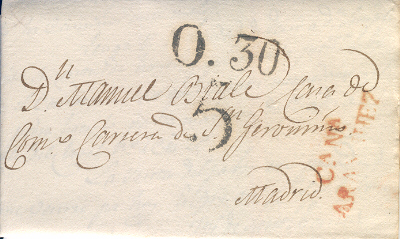 O. 30
Dⁿ Manuel Casa de
Comº Carrera de Sⁿ Geronimo
5
Madrid.
CAN
ARANJUEZ